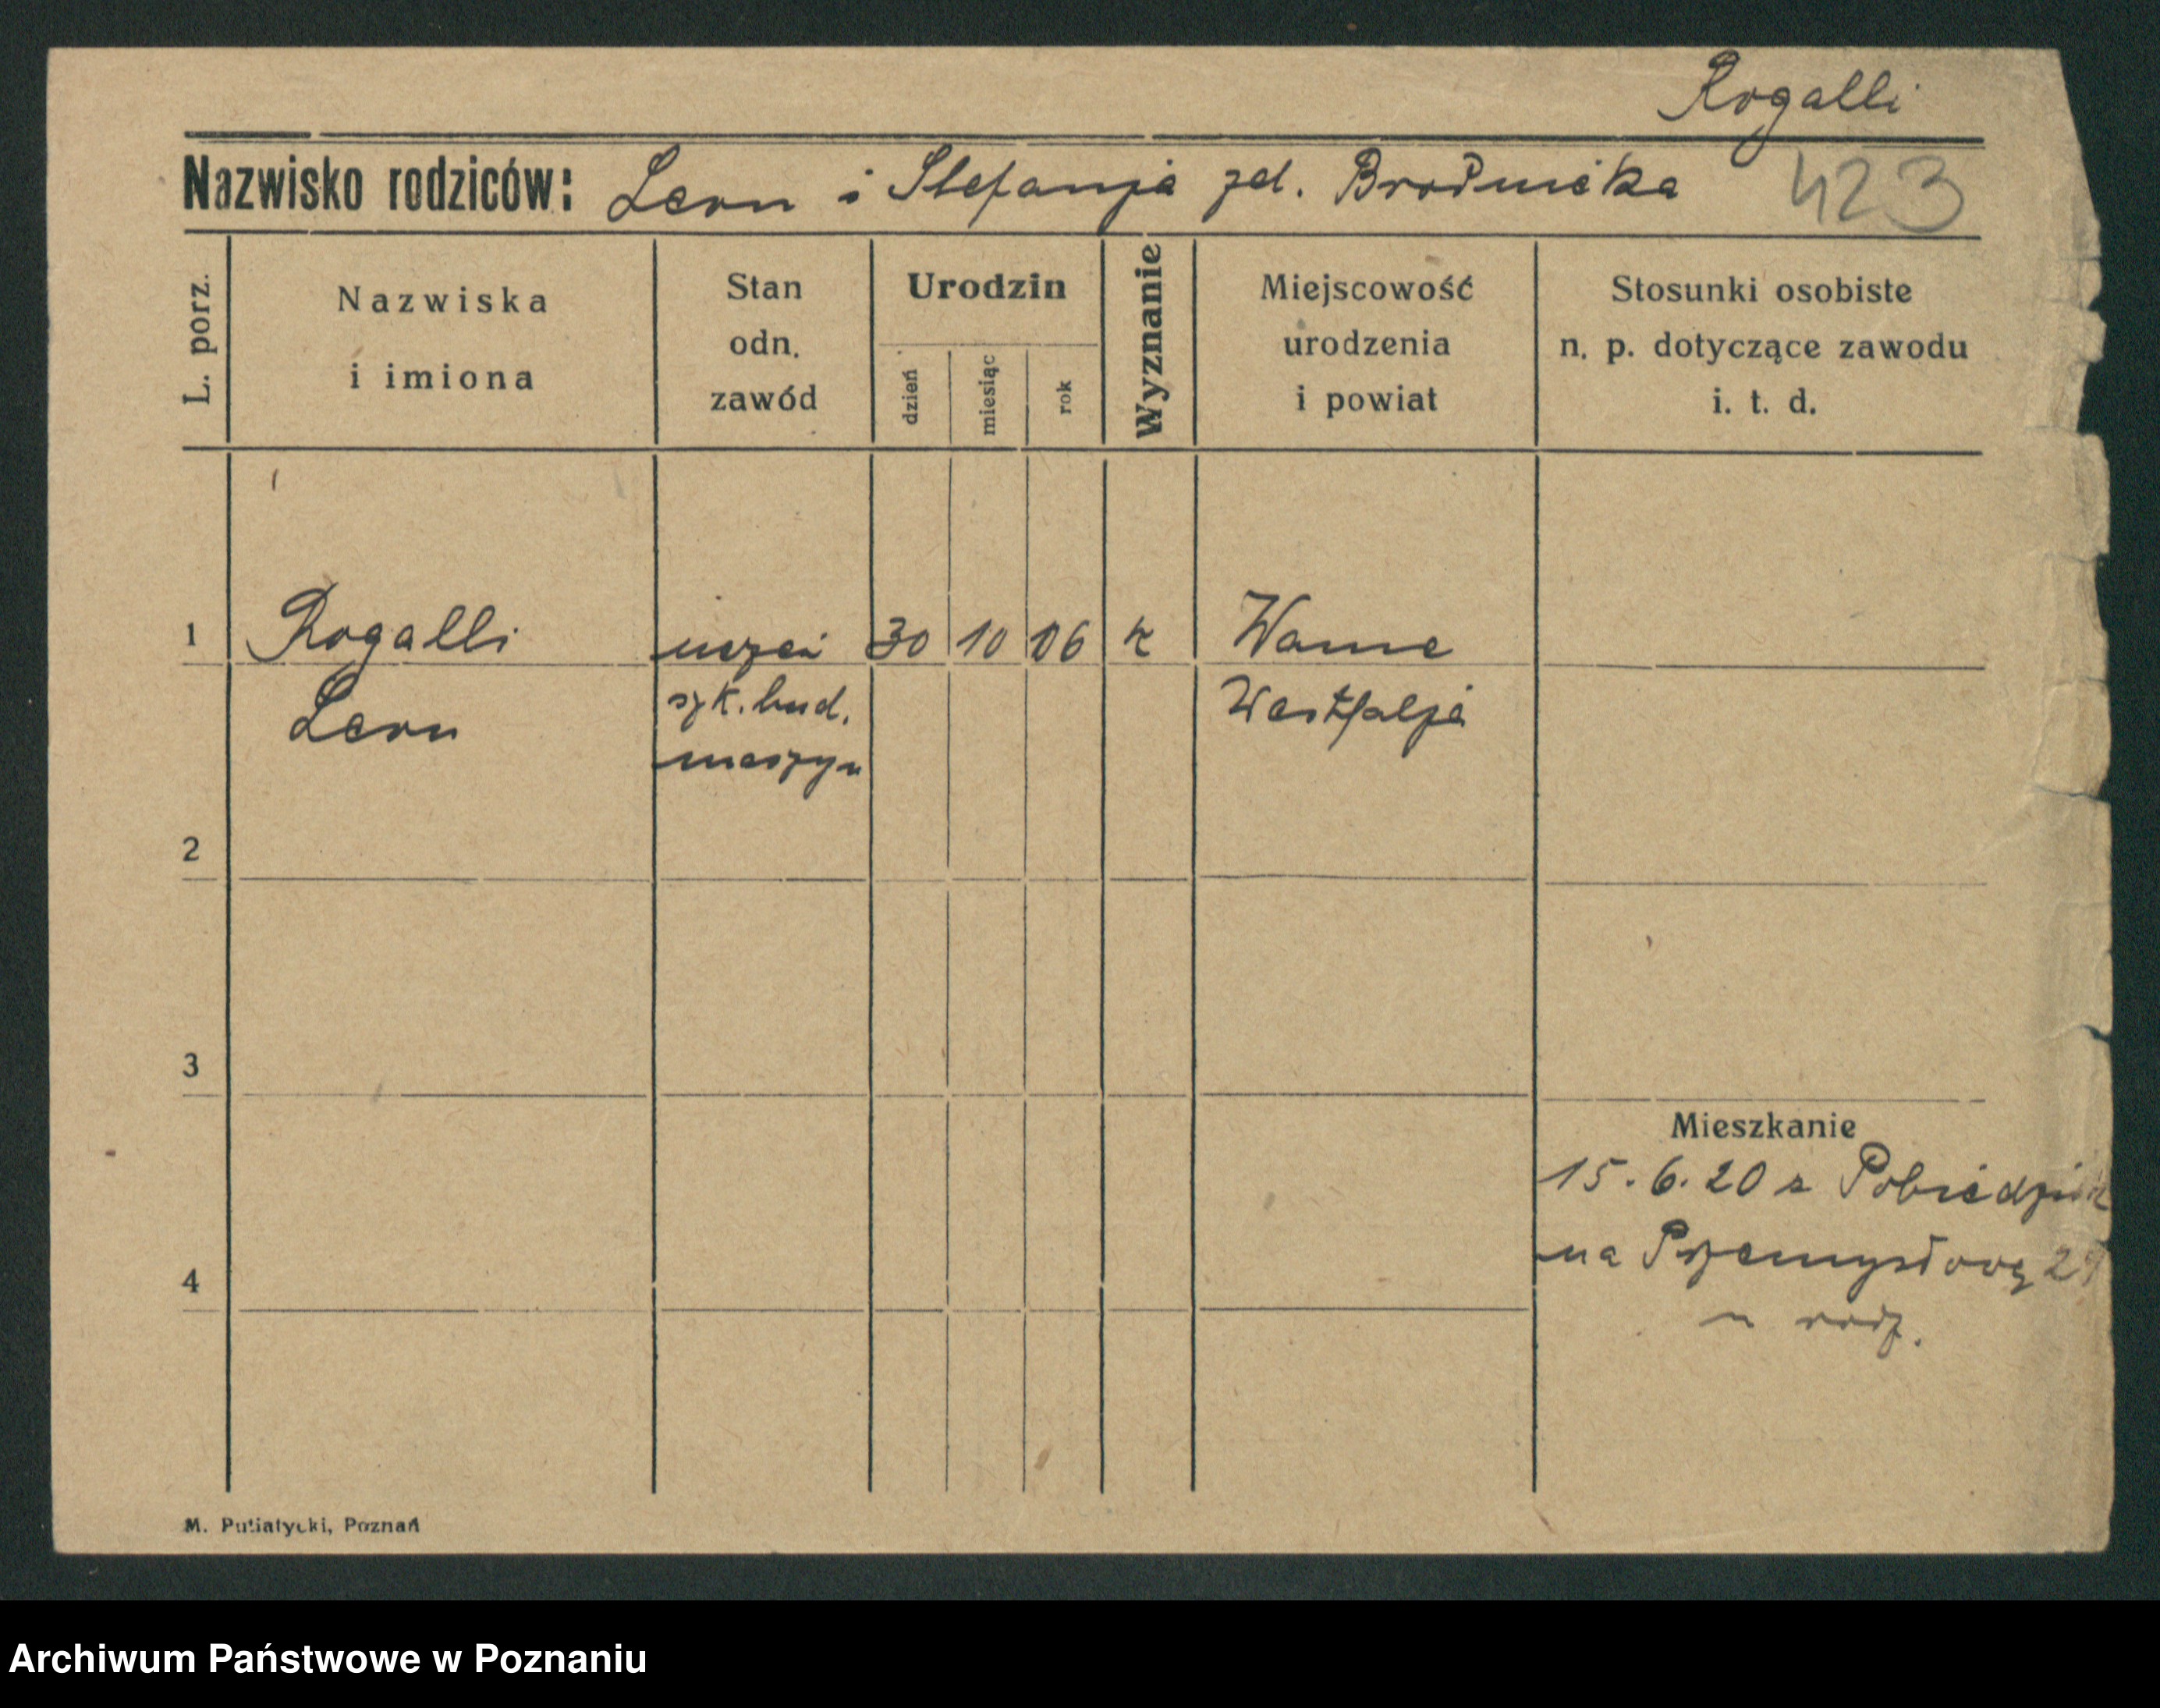 Rogalli
Nazwisko rodziców: Leon i Stefanja zd. Brodnicka 423
L. porz.
Nazwiska
i imiona
Stan
odn.
zawód
Urodzin
dzień
miesiąc
rok
Wyznanie
Miejscowość
urodzenia
i powiat
Stosunki osobiste
n. p. dotyczące zawodu
i. t. d.
1 Rogalli uczeń 30 10 06 k Wanne
Leon szk. bud. Westfalja
maszyn
2
3
Mieszkanie
15.6.20 z Pobiedzisk
na Przemysłową
4
u rodz.
M. Putiatycki, Poznań
Archiwum Państwowe w Poznaniu